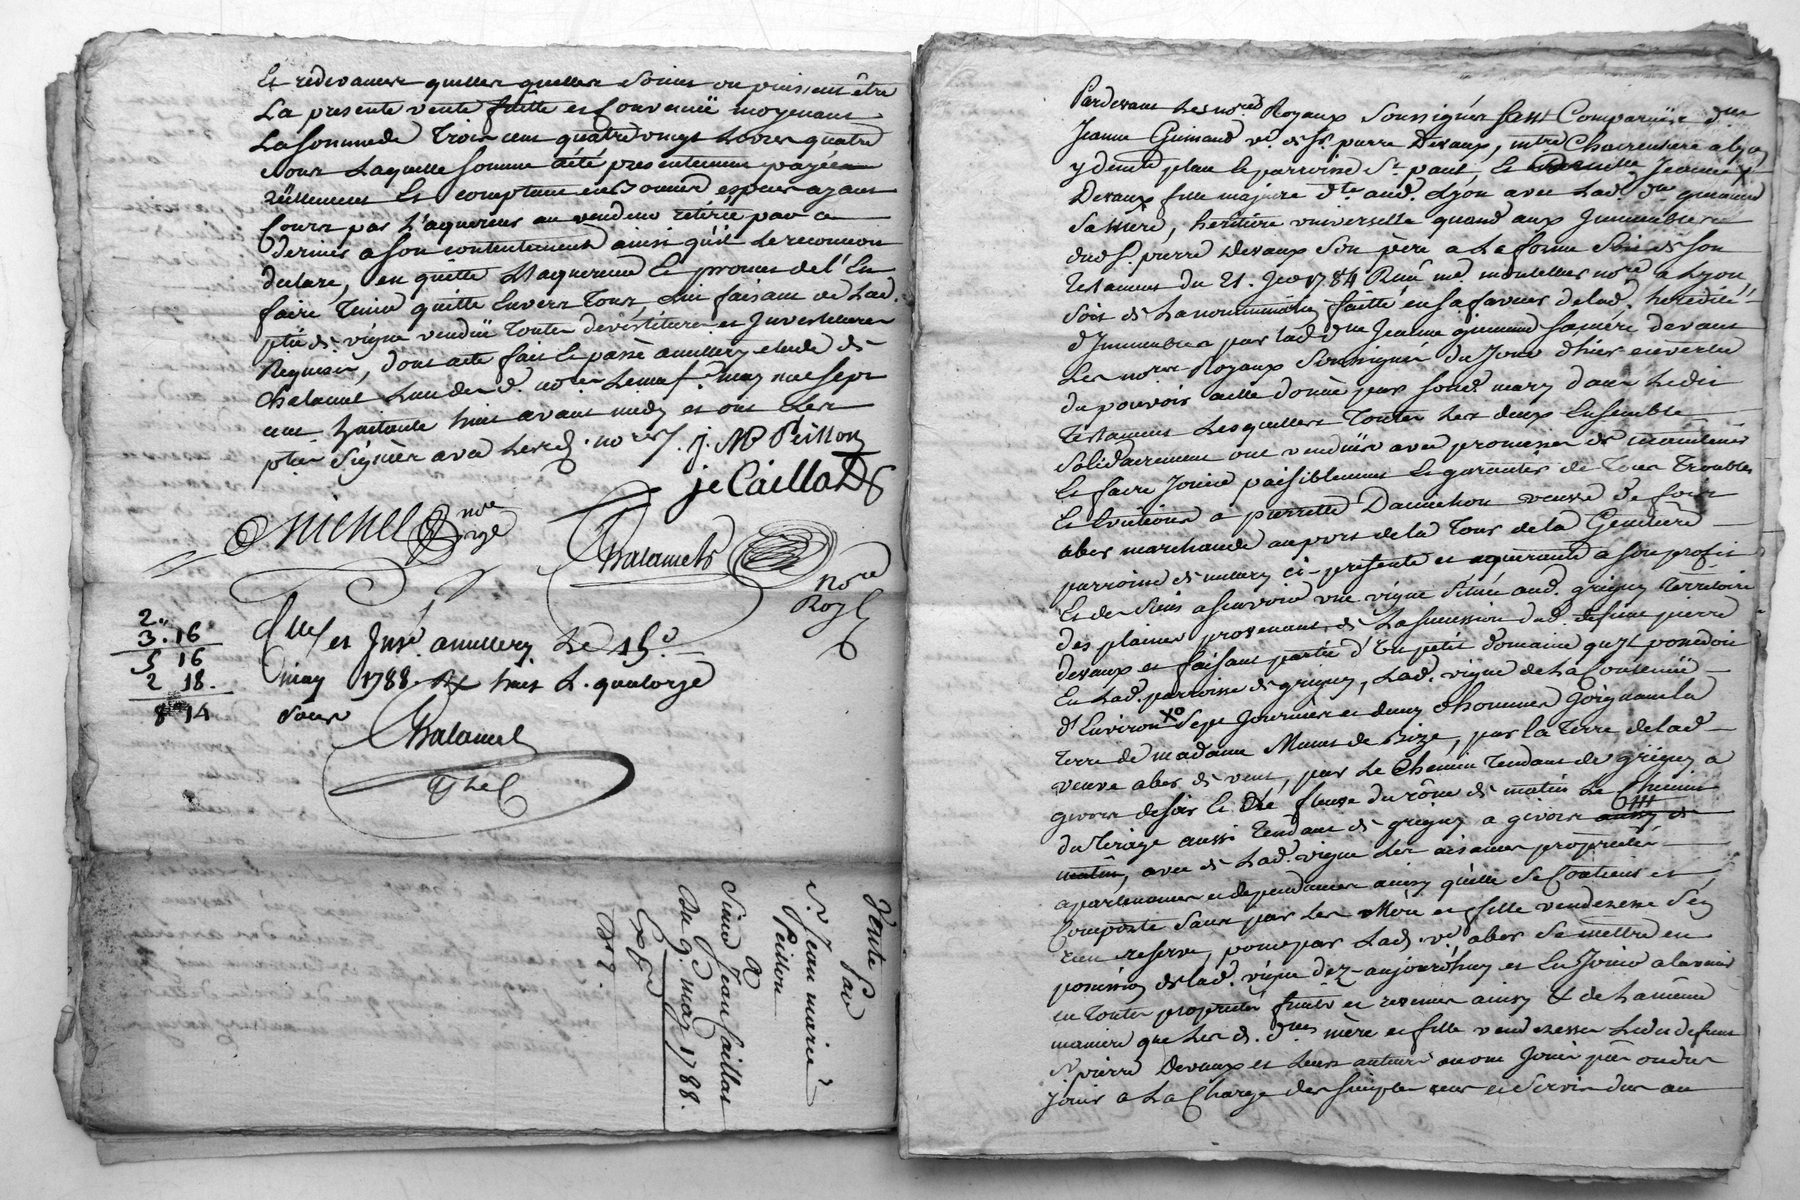 Et redevances quelles quelles soient ou puissent être
La presente vente faitte et Convenüe moyenant
La somme de Trois cent quatre vingt Livres quatre
sous Laquelle somme acté presentement payée
réellement Et comptant en bonnes especes ayant
Cours par L'aquereur au vendeur retirée par ce
dernier a son contentement ainsi qu'il Le reconnoit
declare, en quitte L'aquereur Et promet de l'En
faire Tenir quitte Envers Tous au faisant de Lad.
ptie de vigne vendüe Toutes devestiture et Investiture
Requises, dont acte fait Et passé a millery etude de
Chalamel L'un des d. notres Le neuf may mil sept
cent huitante huit avant midy et ont Les
pties signées avec Lesd. notres. j. M Peillon
je Caillot
Michel nore roye
Chalamel nore Roy
Con͡lle et Insé a millery Le 15e
may 1788. R huit L. quatorze
sous
Chalamel
2"
3. 16
5 16
2 18.
8 14
Vente
Par
sr. Jean marie
Peillon
a
Sieur Jean Caillot
Du 9. may 1788.
Exped
Pardevant Les nores Royaux soussignés sont Comparües dlles
Jeanne Guimand ve. de sr. pierre Devaux, mtre Chaircutiere a Lyon
y demte place et parroisse st. paul, Et Jeanne
Devaux fille majeure dte. aud. Lyon avec Lad. de. guimand
sa mere, heritiere universelle quand aux Immeubles
dud. sr. pierre Devaux son père a La forme Soit de son
Testament du 21. 1784 Reçu me montellier nore a Lyon
soit de La nomination faitte en sa faveur de lad. heredité
d'Immeubles par lad. de Jeanne guimand sa mére devant
Les nores Royaux soussignés du jour d'hier en vertu
du pouvoir a elle donné par sond. mary dans Ledit
Testament Lesquelles Toutes Les deux Ensemble
solidairement ont vendües avec promesse de maintenir
Et faire Jouir paisiblement Et garantir de Tous Troubles
Et Evictions a pierrette Damichon veuve de
abes marchande au port de la Tour de la
parroisse de millery ci-presente et aquerante a son profit
Et des siens a sçavoir une vigne située aud. grigny Territoire
des plaines provenant de La succession dud. defunt pierre
devaux et faisant partie d'Un petit domaine qu'il possedoit
En Lad. parroisse de grigny, Lad. vigne de La Contenüe
d'Environ Sept journées et demy d'hommes Joignant la
terre de madame Munet de Bize, par la terre de lad.
veuve abes de vent, par Le Chemin Tendant de grigny a
givors de soir Et Le fleuve du rône de matin Le Chemin
du Tirage aussi Tendant de grigny a givors
avec de Lad. vigne Ses aisances proprietés
apartenances et dependances ainsy qu'elle se Contient et
Comporte sans par Les Mére et fille venderesses s'en
rien reserver, pour par Lad. ve. abes se mettre en
possession de lad. vigne déz-aujourd'huy et En Jouir a l'avenir
en Toutes proprietés fruits et revenus ainsy & de La même
maniere que Les d. dlles mère et fille venderesses Ledit defunt
sr pierre Devaux et Leurs auteurs en ont Joui pû ou dû
jouir a La Charge des simples cens et servis dus au